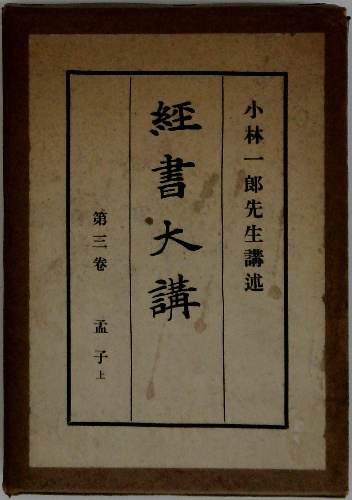 小林一郎先生講述
經書大講
第三卷 孟子上